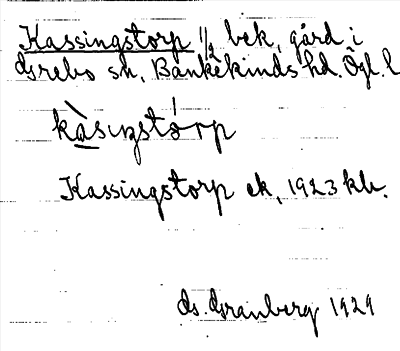 Kassingstorp 1/2 bek, gård i
Grebo sn, Bankekinds hd. Ögl. l
kàsıŋstórp
Kassingstorp ek, 1923 kb.
G. Granberg 1929